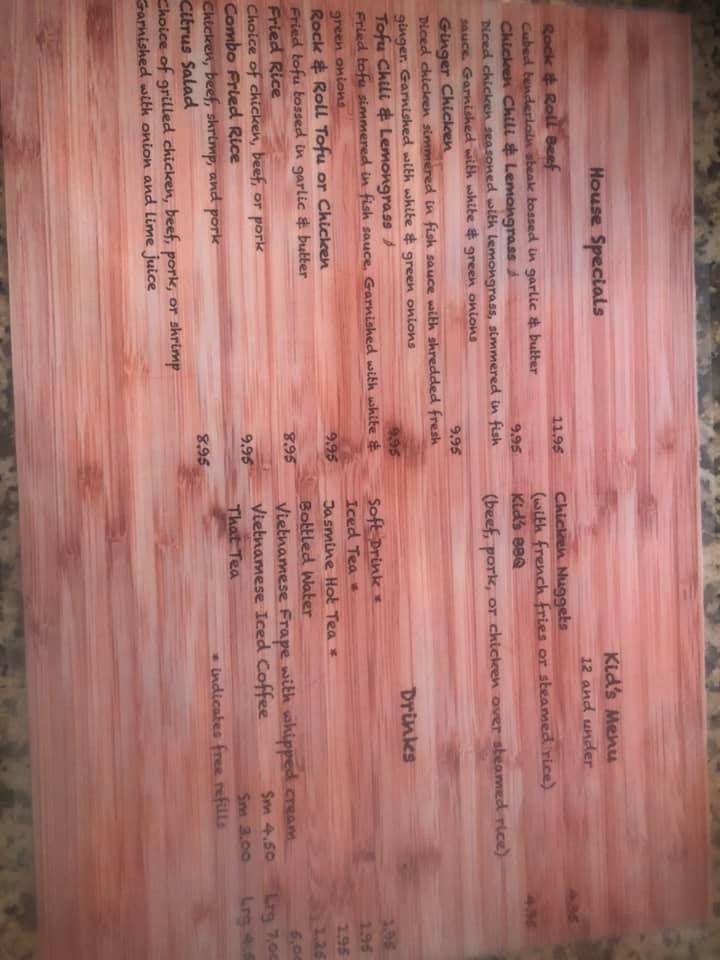 House Specials
Rock & Roll Beef 11.95
Cubed tenderloin steak tossed in garlic & butter
Chicken Chili & Lemongrass 9.95
Diced chicken seasoned with lemongrass, simmered in fish
sauce. Garnished with white & green onions
Ginger Chicken 9.95
Diced chicken simmered in fish sauce with shredded fresh
ginger. Garnished with white & green onions
Tofu Chili & Lemongrass 9.95
Fried tofu simmered in fish sauce. Garnished with white &
green onions
Rock & Roll Tofu or Chicken 9.95
Fried tofu tossed in garlic & butter
Fried Rice 8.95
Choice of chicken, beef, or pork
Combo Fried Rice 9.95
Chicken, beef, shrimp, and pork
Citrus Salad 8.95
Choice of grilled chicken, beef, pork, or shrimp
Garnished with onion and lime juice
Kid's Menu
12 and under
Chicken Nuggets 4.95
(with french fries or steamed rice)
Kid's BBQ 4.95
(beef, pork, or chicken over steamed rice)
Drinks
Soft Drink * 1.95
Iced Tea * 1.95
Jasmine Hot Tea * 1.95
Bottled Water 1.25
Vietnamese Frape with whipped cream 6.00
Vietnamese Iced Coffee Sm 4.50 Lrg 7.00
Thai Tea Sm 3.00 Lrg
* indicates free refills